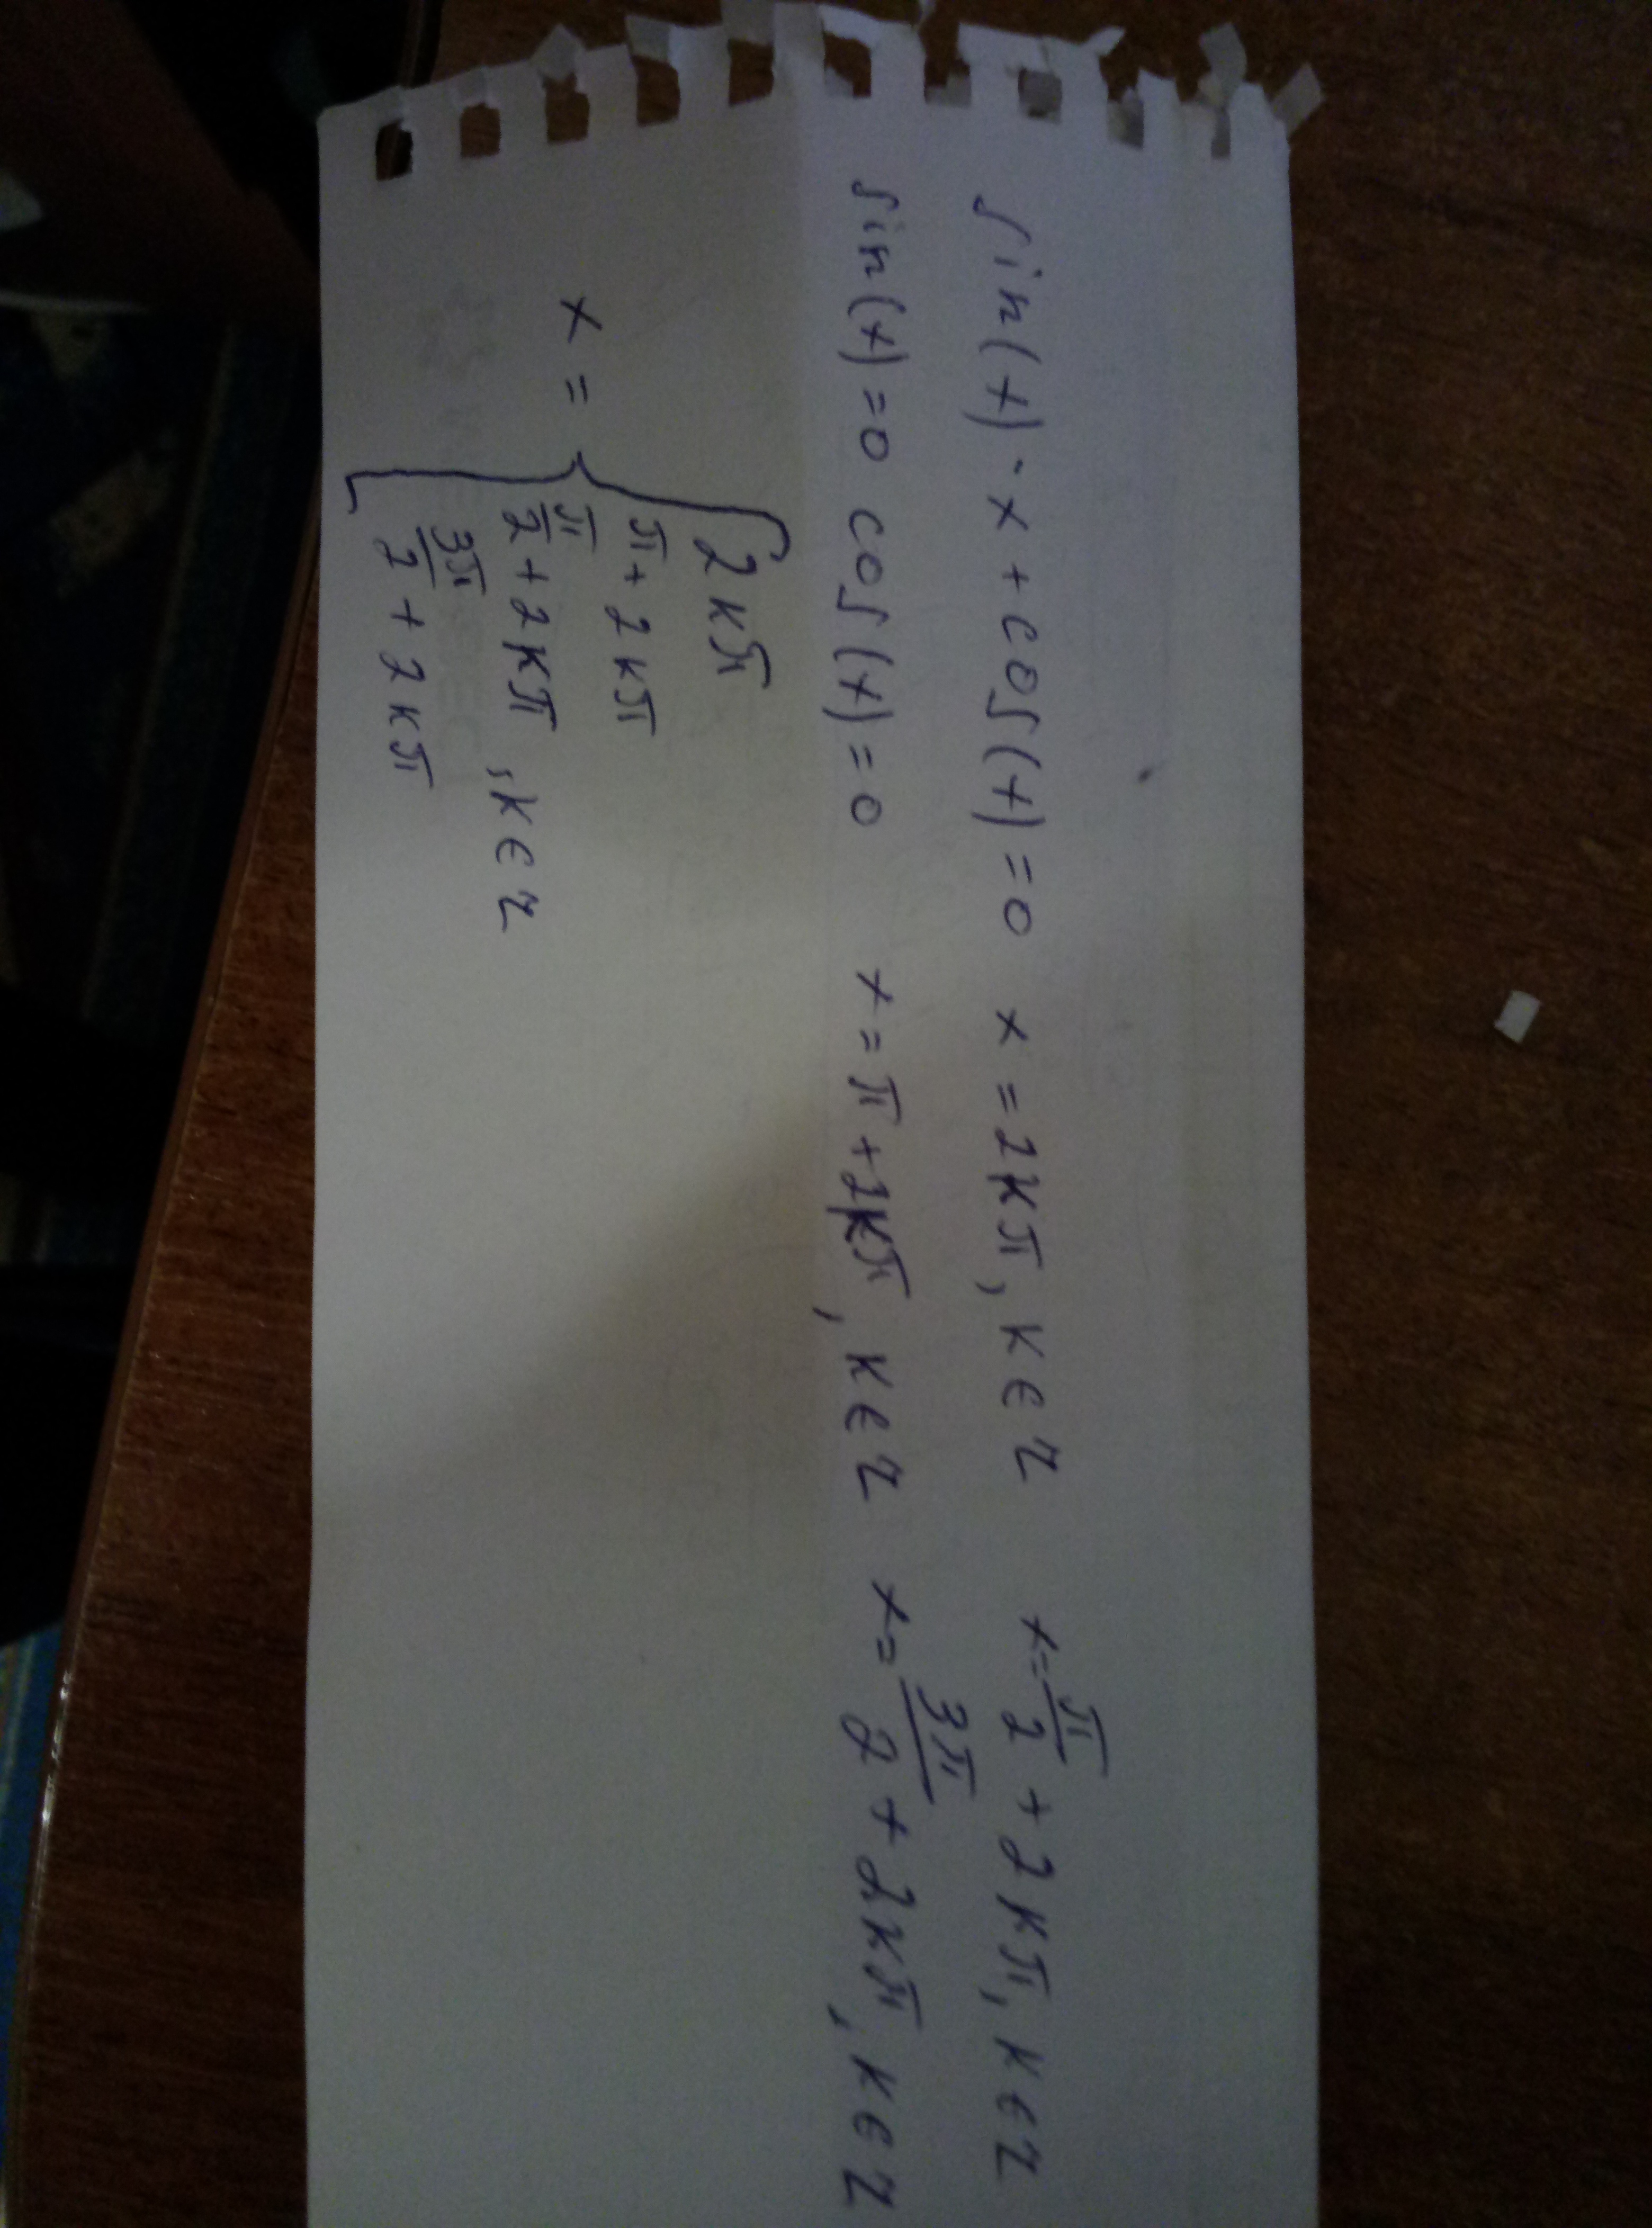 sin(x) · x + cos(x) = 0 x = 2kπ, k ∈ Z x = π/2 + 2kπ, k ∈ Z
sin(x) = 0 cos(x) = 0 x = π + 2kπ, k ∈ Z x = 3π/2 + 2kπ, k ∈ Z
2kπ
π + 2kπ
x = { π/2 + 2kπ , k ∈ Z
3π/2 + 2kπ